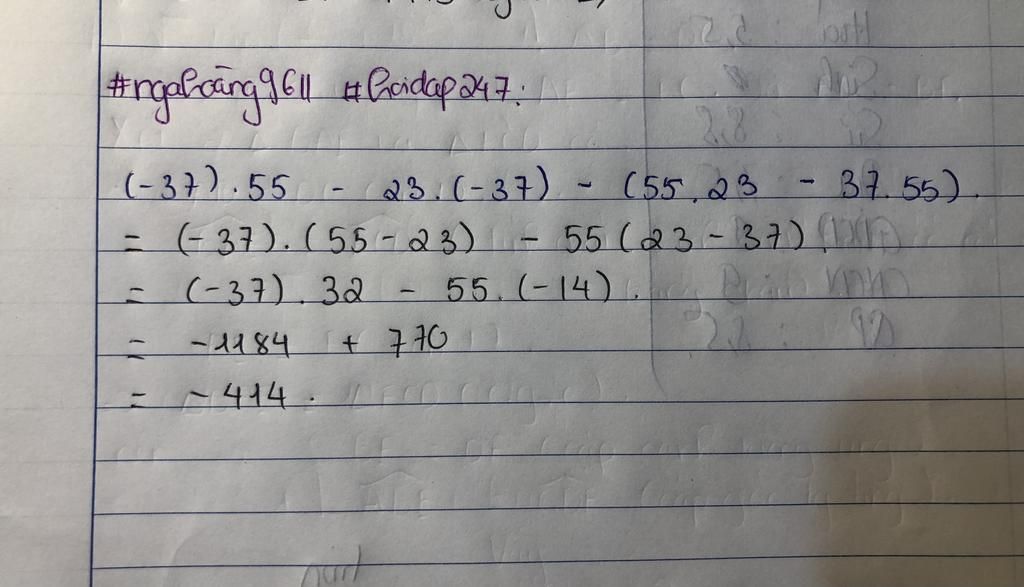 #ngahoāng9611 #hoidap247:
(-37).55 - 23.(-37) - (55.23 - 37.55).
= (-37).(55-23) - 55(23-37).
= (-37).32 - 55.(-14).
= -1184 + 770
= -414.